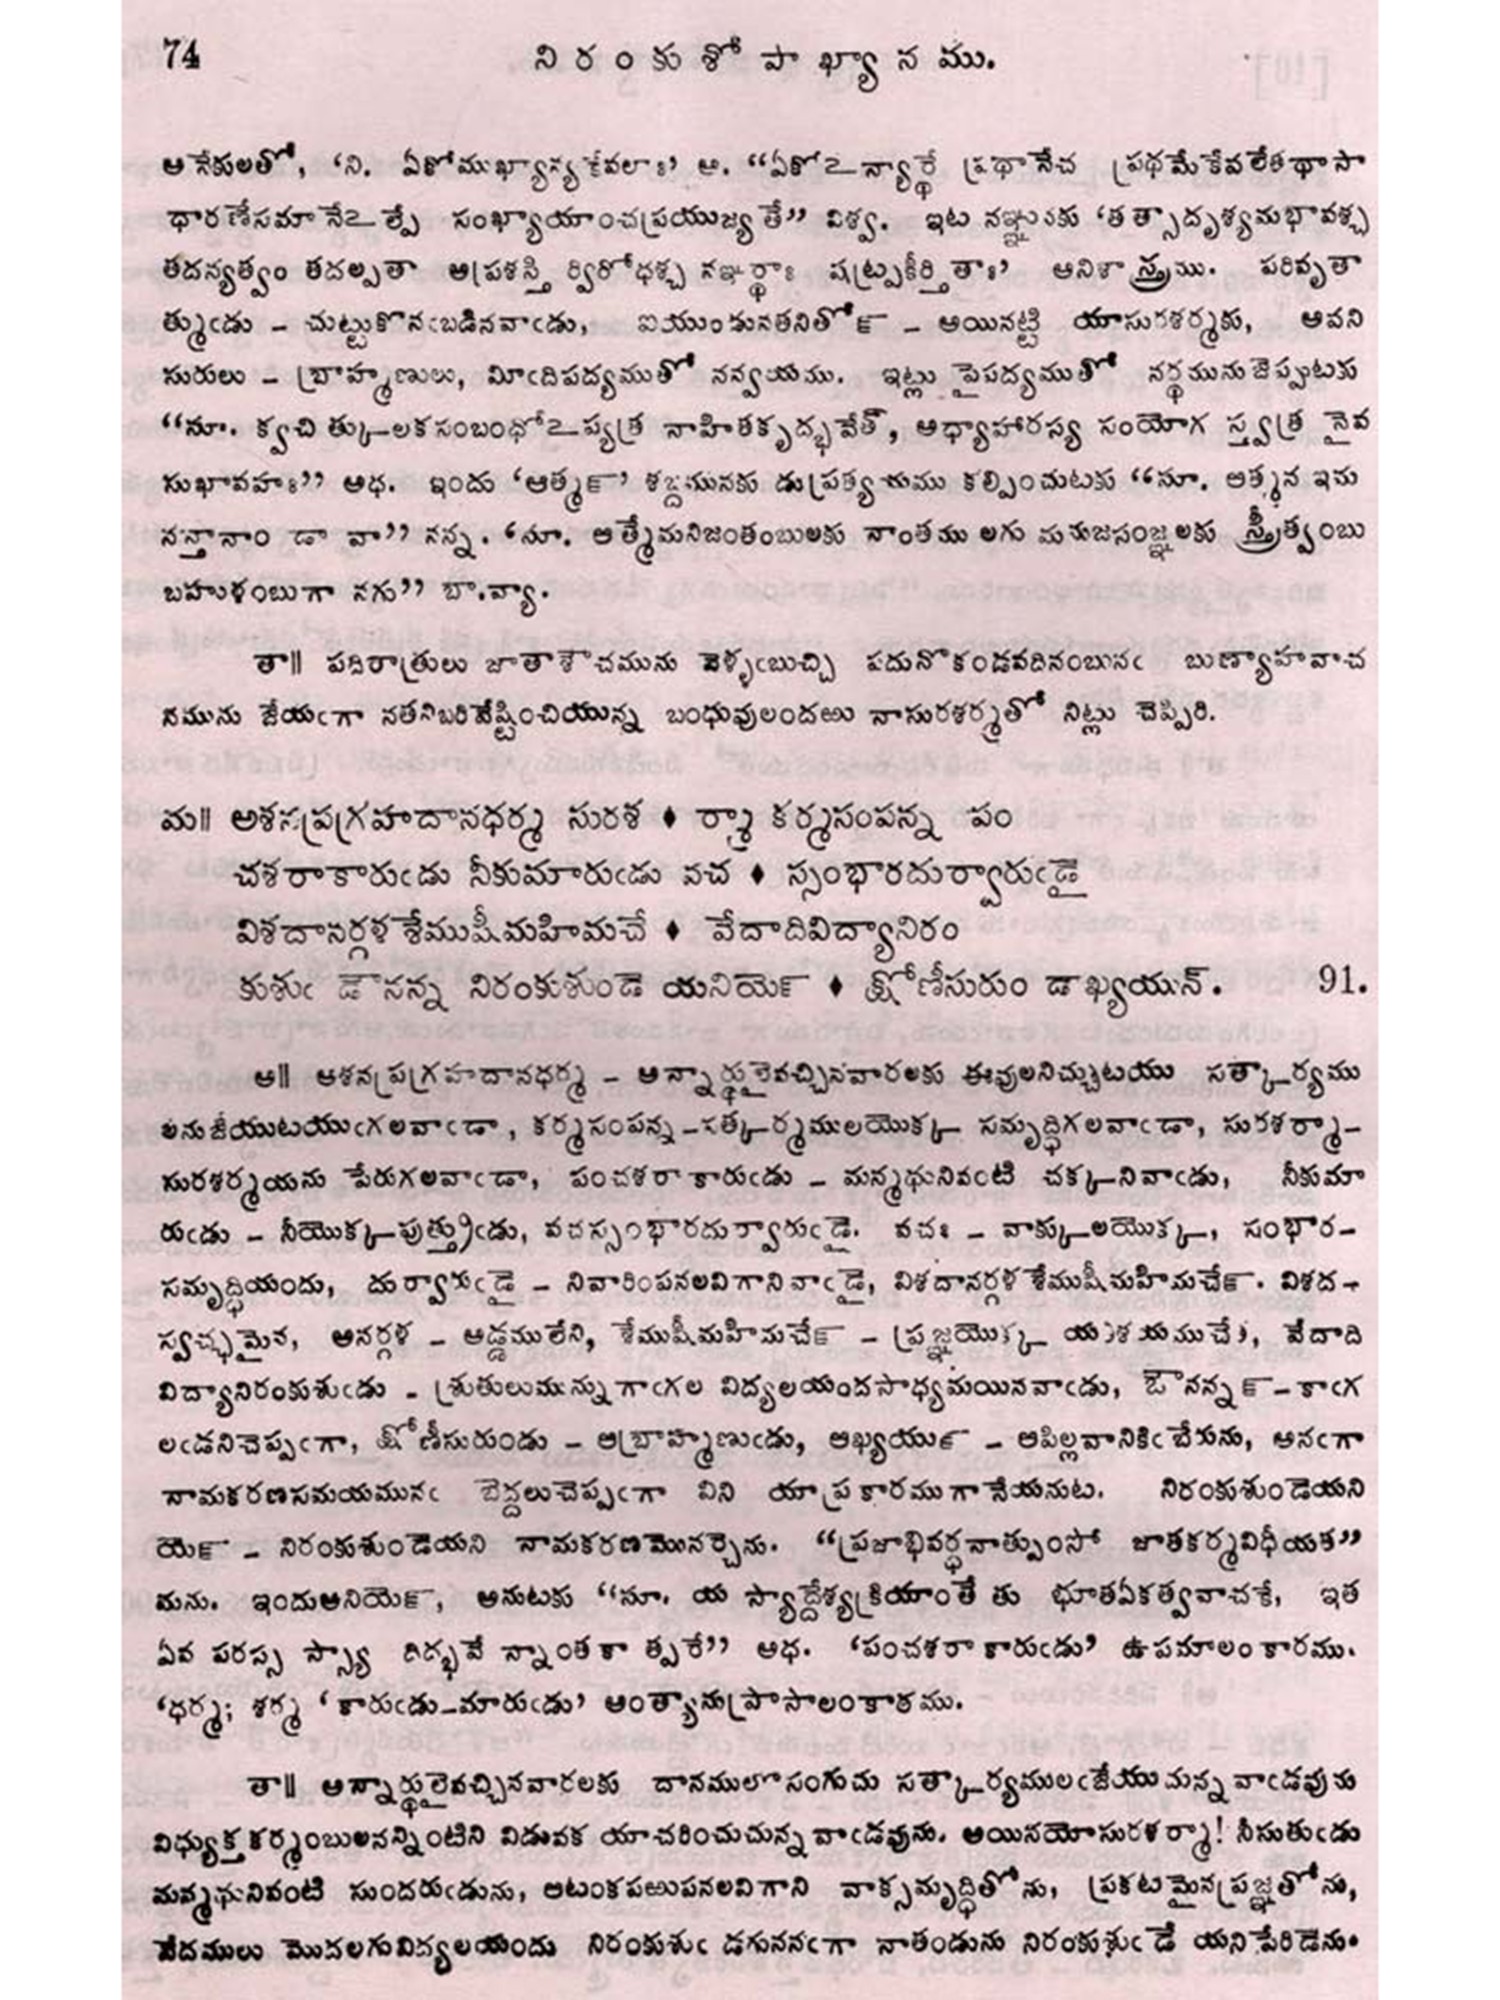 74 నిరంకుశోపాఖ్యానము.
అనేకులతో, ‘ని. ఏకోముఖ్యాన్యకేవలాః’ ఆ. “ఏకోఽన్యార్థే ప్రధానేచ ప్రథమే కేవలేతథాసా
ధారణేసమానేఽల్పే సంఖ్యాయాంచప్రయుజ్యతే” విశ్వ. ఇట నఞ్ఞునకు ‘తత్సాదృశ్యమభావశ్చ
తదన్యత్వం తదల్పతా అప్రశస్తి ర్విరోధశ్చ నఞర్థాః షట్ప్రకీర్తితాః’ అనిశాస్త్రము. పరివృతా
త్ముఁడు – చుట్టుకొనఁబడినవాఁడు, ఐయుండునతనితో౯ – అయినట్టి యాసురశర్మకు, అవని
సురులు – బ్రాహ్మణులు, మీఁదిపద్యముతో నన్వయము. ఇట్లు పైపద్యముతో నర్థమునుజెప్పుటకు
“సూ. క్వచి త్కులకసంబంధోఽప్యత్ర నాహితకృద్భవేత్, అధ్యాహారస్య సంయోగ స్త్వత్ర నైవ
సుఖావహః” అధ. ఇందు ‘ఆత్మ౯’ శబ్దమునకు డుప్రత్యయము కల్పించుటకు “సూ. అత్మన ఇమ
నన్తానాం డా వా” నన్న. ‘సూ. ఆత్మేమనిజంతంబులకు నాంతము లగు మనుజసంజ్ఞలకు స్త్రీత్వంబు
బహుళంబుగా నగు” బా.వ్యా.
తా॥ పదిరాత్రులు జాతాశౌచమును వెళ్ళఁబుచ్చి పదునొకండవదినంబునఁ బుణ్యాహవాచ
నమును జేయఁగా నతనిబరివేష్టించియున్న బంధువులందఱు నాసురశర్మతో నిట్లు చెప్పిరి.
మ॥ అశనప్రగ్రహదానధర్మ సురశ ♦ ర్మా కర్మసంపన్న పం
చశరాకారుఁడు నీకుమారుఁడు వచ ♦ స్సంభారదుర్వారుఁడై
విశదానర్గళశేముషీమహిమచే ♦ వేదాదివిద్యానిరం
కుశుఁ డౌనన్న నిరంకుశుండె యనియె౯ ♦ క్షోణీసురుం డాఖ్యయున్. 91.
అ॥ అశనప్రగ్రహదానధర్మ – అన్నార్థులైవచ్చినవారలకు ఈవులనిచ్చుటయు సత్కార్యము
లనుజేయుటయుఁగలవాఁడా, కర్మసంపన్న–సత్కర్మములయొక్క సమృద్ధిగలవాఁడా, సురశర్మా–
సురశర్మయను పేరుగలవాఁడా, పంచశరాకారుఁడు – మన్మథునివంటి చక్కనివాఁడు, నీకుమా
రుఁడు – నీయొక్కపుత్త్రుఁడు, వచస్సంభారదుర్వారుఁడై. వచః – వాక్కులయొక్క, సంభార–
సమృద్ధియందు, దుర్వారుఁడై – నివారింపనలవిగానివాఁడై, విశదానర్గళశేముషీమహిమచే౯. విశద–
స్వచ్ఛమైన, అనర్గళ – అడ్డములేని, శేముషీమహిమచే౯ – ప్రజ్ఞయొక్క యతిశయముచే, వేదాది
విద్యానిరంకుశుఁడు – శ్రుతులుమున్నుగాఁగల విద్యలయందసాధ్యమయినవాఁడు, ఔనన్న౯–కాఁగ
లఁడనిచెప్పఁగా, క్షోణీసురుండు – అబ్రాహ్మణుఁడు, ఆఖ్యయు౯ – అపిల్లవానికిఁబేరును, అనఁగా
నామకరణసమయమునఁ బెద్దలుచెప్పఁగా విని యాప్రకారముగానేయనుట. నిరంకుశుండెయని
యె౯ – నిరంకుశుండెయని నామకరణమొనర్చెను. “ప్రజాభివర్ధనాత్పుంసో జాతకర్మవిధీయతే”
మను. ఇందుఅనియె౯, అనుటకు “సూ. య స్యాద్దేశ్యక్రియాంతే తు భూతఏకత్వవాచకే, ఇత
ఏవ పరస్స స్స్యా దిద్భవే న్నాంతకా త్పరే” అధ. ‘పంచశరాకారుఁడు’ ఉపమాలంకారము.
‘ధర్మ; శర్మ ‘కారుఁడు–మారుఁడు’ అంత్యానుప్రాసాలంకారము.
తా॥ అన్నార్థులైవచ్చినవారలకు దానములొసంగుచు సత్కార్యములఁజేయుచున్నవాఁడవును
విధ్యుక్తకర్మంబులనన్నింటిని విడువక యాచరించుచున్నవాఁడవును. అయినయోసురశర్మా! నీసుతుఁడు
మన్మథునివంటి సుందరుఁడును, అటంకపఱుపనలవిగాని వాక్సమృద్ధితోను, ప్రకటమైనప్రజ్ఞతోను,
వేదములు మొదలగువిద్యలయందు నిరంకుశుఁ డగుననఁగా నాతండును నిరంకుశుఁడే యనిపేరిడెను.